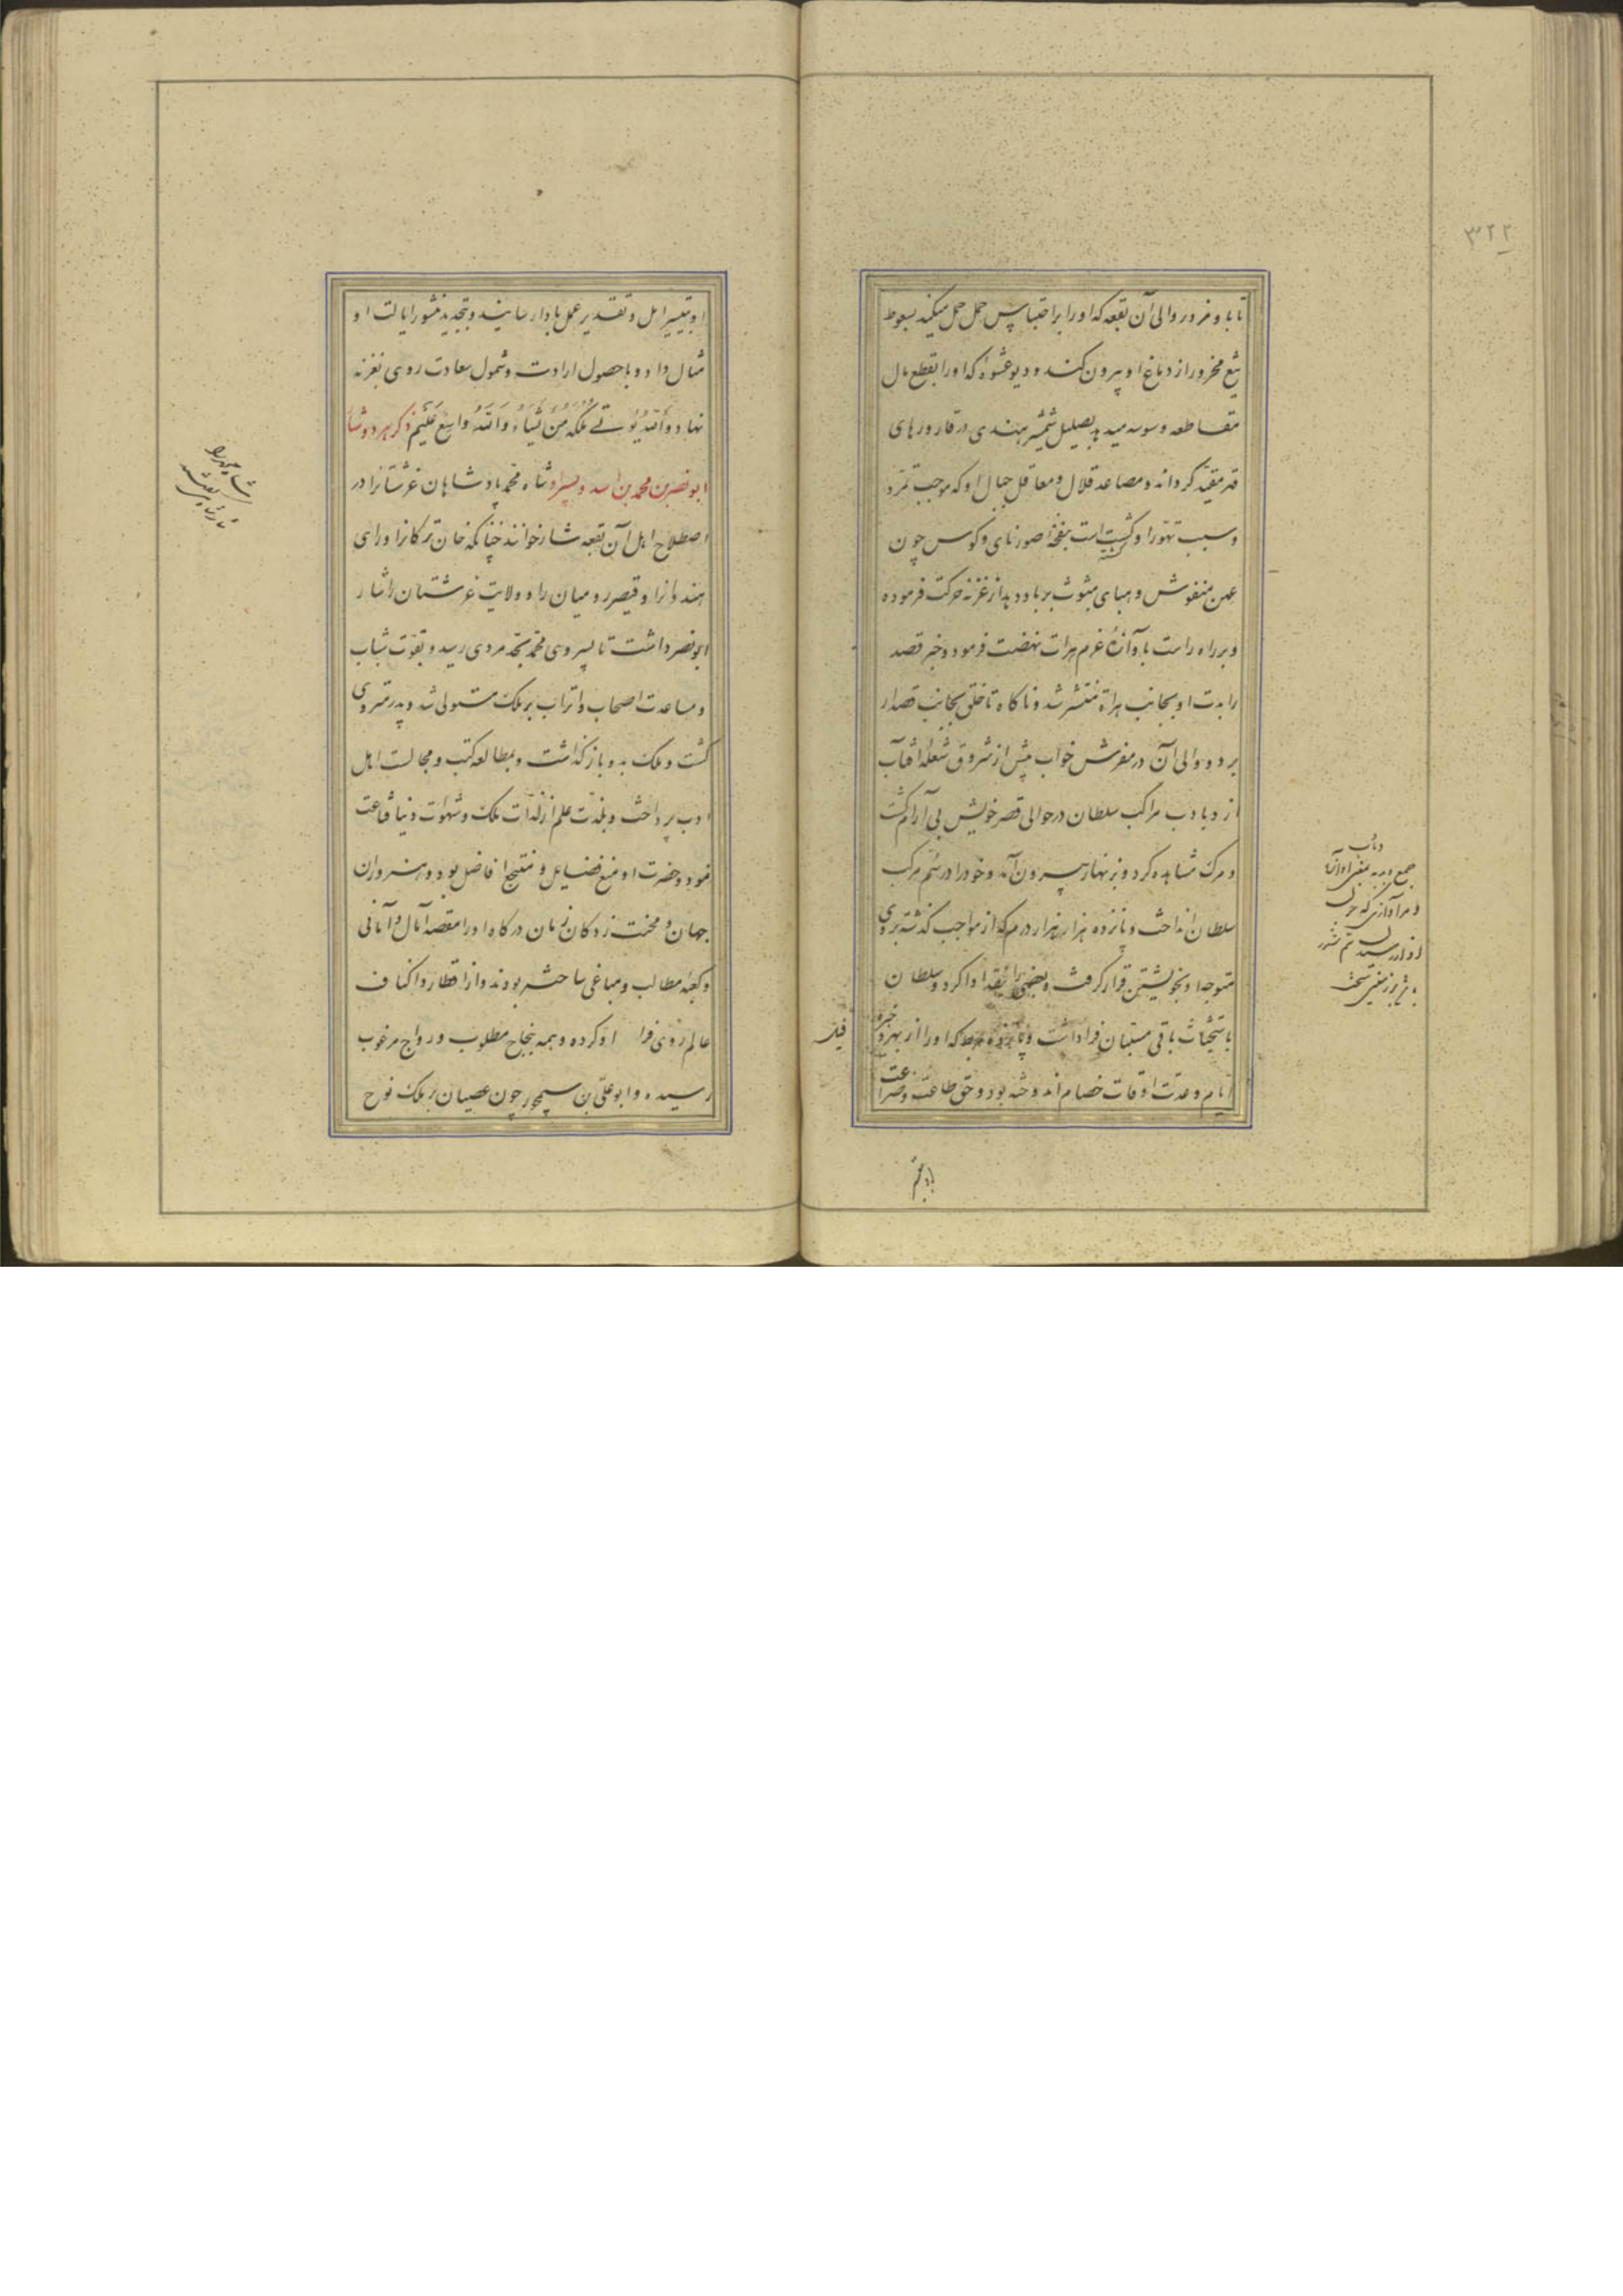 ۳۲۲
تا باد غرور والی آن بقعه که او را بر احتباس حمل میکند بسعوط
تیغ مخرور از دماغ او بیرون کند و دیو عشوهٔ که او را بقطع مال
مقاطعه وسوسه میدهد بصلیل شمشیر هندی در قارورهای
قهر مقید گرداند و مصاعد قلال و معاقل جبال او که موجب تمرّد
و سبب تهوّر او گشته است بنفخهٔ صور نای و کوس چون
عهن منفوش و هبای مبثوث بر باد دهد از غزنه حرکت فرموده
و بر راه راست بآوازهٔ عزم هرات نهضت فرمود و خبر قصد
رایت او بجانب هراة منتشر شد و ناگاه تاختن بجانب قصدار
برد و والی آن در مفرش خواب پیش از شروق شعلهٔ آفتاب
از دبادب مراکب سلطان در حوالی قصر خویش بی آرام گشت
و مرگ مشاهده کرد و بزنهار بیرون آمد و خود را در سم مرکب
سلطان انداخت و پانزده هزار هزار درم که از مواجب گذشته بروی
متوجه او بخویشتن قرار گرفت و بعضی را بنقد ادا کرد و سلطان
باستحثاث باقی مستبان فرا داشت و پانزده مربط که او را از بهر ذخیره
ایام و عدت اوقات خصام اندوخته بود و حق طاعت و ضراعت
فیل
دبادب
جمع دبدبه بمعنی آواز
او بتیسیر امل و تقدیر عمل باداء رسانید و بتجدید منشور ایالت او
مثال داد و با حصول ارادت و شمول سعادت روی بغزنه
نهاد و الله یؤتی ملکه من یشاء والله واسع علیم ذکر هر دو شار
ابو نصر بن محمد بن اسد و پسر او شاه محمد پادشاهان غرشتانرا در
اصطلاح اهل آن بقعه شار خوانند چنانکه خان ترکانرا و رای
هندوانرا و قیصر رومیان را و ولایت غرشتان را شار
ابو نصر داشت تا پسر وی محمد بحدّ مردی رسید و بقوّت شباب
و مساعدت اصحاب و اتراب بر ملک مستولی شد و پدر منزوی
گشت و ملک بدو باز گذاشت و بمطالعه کتب و مجالست اهل
ادب پرداخت و بلذّت علم از لذّات ملک و شهوات دنیا قناعت
نمود و حضرت او منبع فضایل و منتجع افاضل بود و هنروران
جهان و محنت زدگان زمان درگاه او را مقصد آمال و امانی
و کعبه مطالب و مباغی ساخته بودند و از اقطار و اکناف
عالم روی فرا او کرده و همه بنجاح مطلوب و رواج مرغوب
رسیده و ابو علی بن سیمجور چون عصیان بر ملک نوح